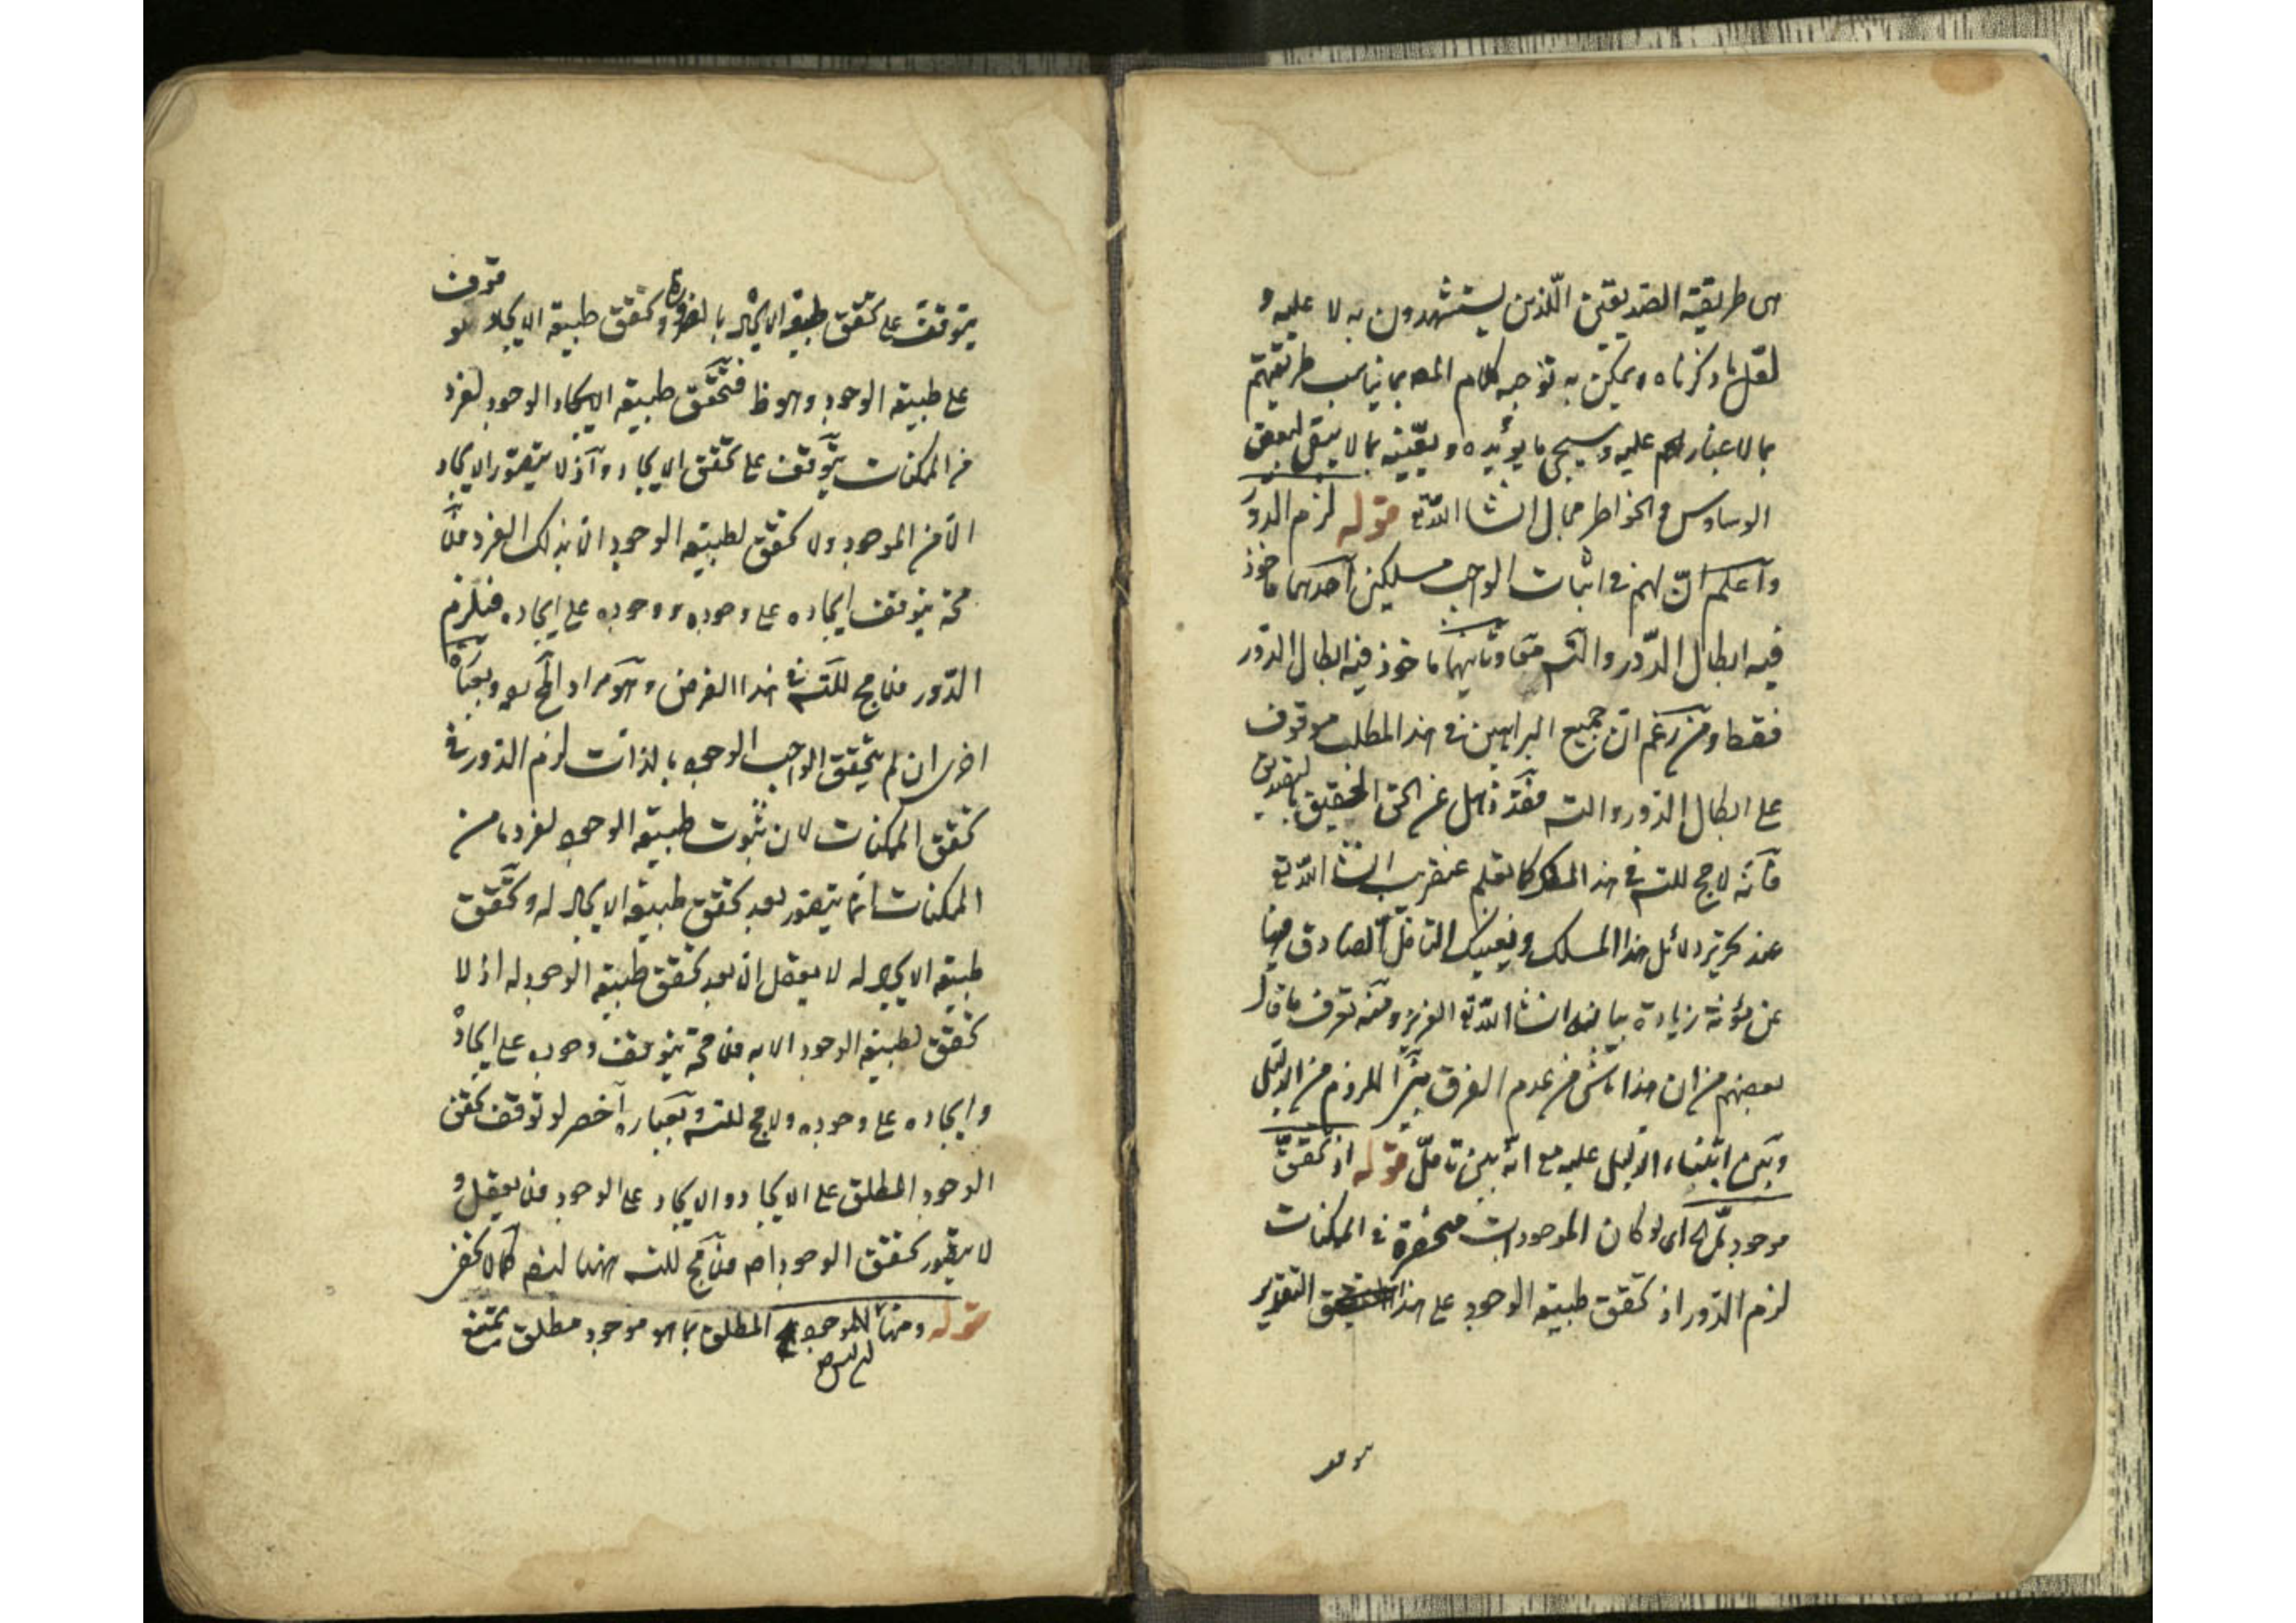 هى طريقة الصديقين اللذين يستشهدون به لا عليه و
لعل ما ذكرناه يمكن به توجيه كلام المص بما يناسب طريقتهم
بما لا غبار عليه وسيجئ ما يؤيده و يعينه بما لا يبقى لبعض
الوساوس و الخواطر مجال انشا الله تع قوله لزم الدور
واعلم ان لهم فى اثبات الواجب مسلكين احدهما ماخوذ
فيه ابطال الدور والتسه وثانيهما ماخوذ فيه ابطال الدور
فقط ومن زعم ان جميع البراهين فى هذا المطلب موقوف
على ابطال الدور والتسه فقد ذهل عن الحق الحقيق بالتصديق
فانه لا مج للتسه فى هذا المسلك كما تعلم عنقريب انشا الله تع
عند تحرير دلائل هذا المسلك ويغنيك التامل الصادق فيها
عن مؤنة زيادة بيان انشا الله تع العزيز ومنه تعرف ما قال
بعضهم من ان هذا ناشى من عدم الفرق بين اللزوم من الدليل
وبين ابتناء الدليل عليه مع انه بين تامل قوله اذ تحقق
موجود ما الخ اى لو كان الموجودات منحصرة فى الممكنات
لزم الدور اذ تحقق طبيعة الوجود على هذا التقدير
يتوقف على تحقق طبيعة الايجاد بالضرورة وتحقق طبيعة الايجاد موقوف
على طبيعة الوجود وهو ظ فتحقق طبيعة الايجاد الوجود لفرد
من الممكنات يتوقف على تحقق الايجاد و اذ لا يتصور الايجاد
الا من الموجود ولا تحقق لطبيعة الوجود الا بذلك الفرد فمن
محة يتوقف ايجاده على وجوده ووجوده على ايجاده فيلزم
الدور فلا مج للتسه فى هذا الفرض وهو مراد المص وبعبارة
اخرى ان لم يتحقق الواجب الوجود بالذات لزم الدور فى
تحقق الممكنات لان ثبوت طبيعة الوجود لفرد ما من
الممكنات انما يتصور بعد تحقق طبيعة الايجاد له وتحقق
طبيعة الايجاد له لا يعقل الا بعد تحقق طبيعة الوجود له اذ لا
تحقق لطبيعة الوجود الا به فمن محة يتوقف وجوده على ايجاده
و ايجاده على وجوده ولا مج للتسه وبعبارة اخصر لو توقف تحقق
الوجود المطلق على الايجاد و الايجاد على الوجود فلا يعقل و
لا يتصور تحقق الوجود اصلا فلا مج للتسه ههنا ايضا كما لا يخفى
قوله ومنها ليس للموجود المطلق بما هو موجود مطلق يمتنع